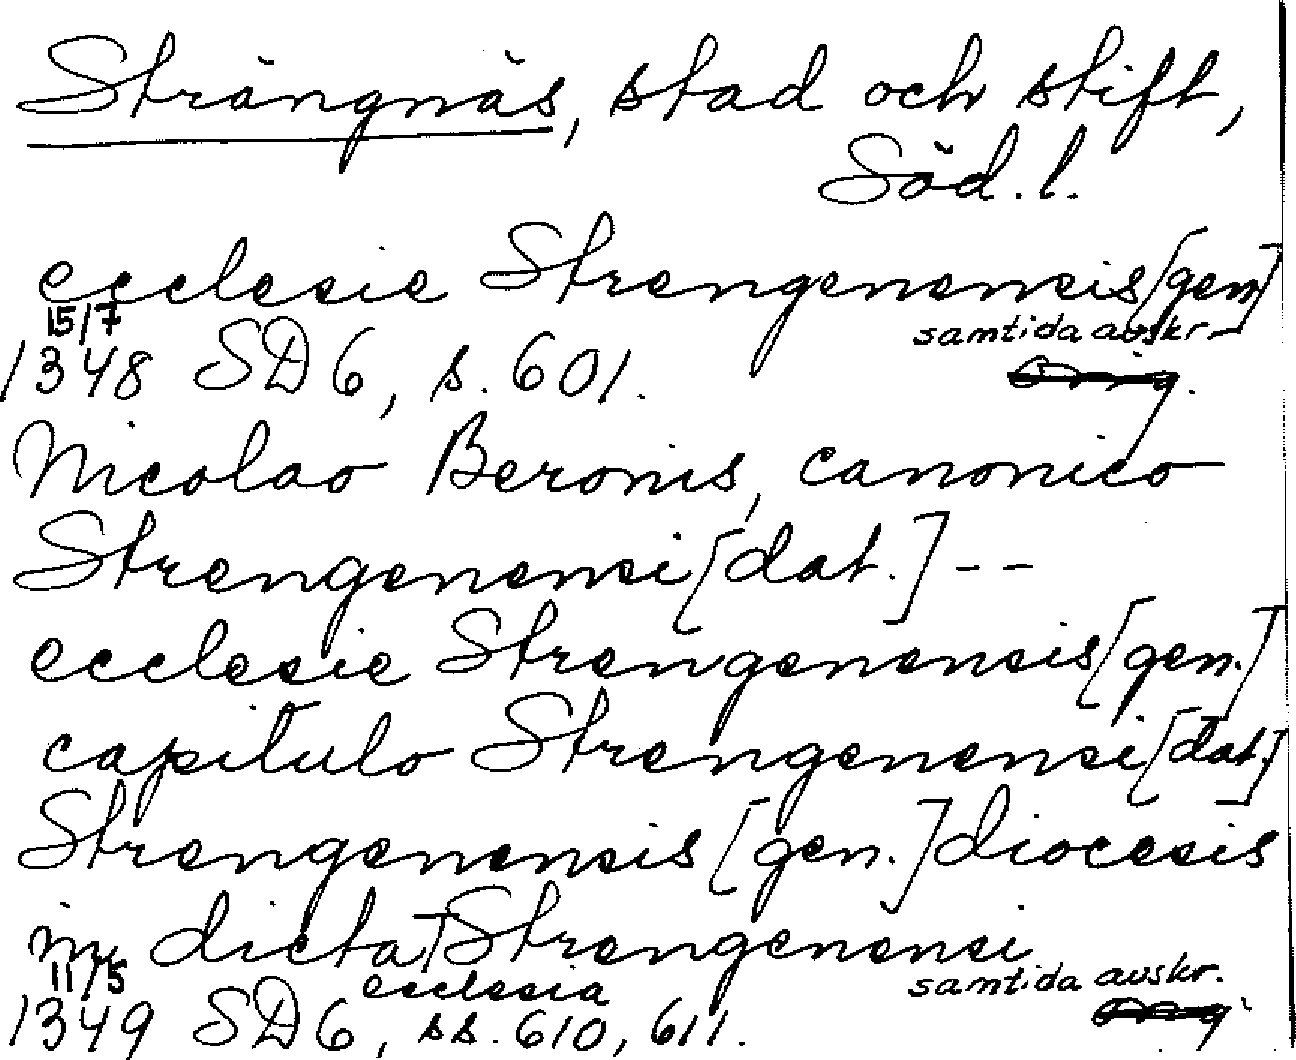 Strängnäs, stad och stift,
Söd. l.
ecclesie Strengenensis [gen]
15/7 samtida avskr.
1348 SD 6, s. 601. Orig.
Nicolao Beronis, canonico
Strengenensi [dat.] --
ecclesie Strengenensis [gen.]
capitulo Strengenensi [dat.]
Strengenensis [gen.] diocesis
in dicta Strengenensi
11/5 ecclesia samtida avskr.
1349 SD 6, ss. 610, 611. Orig